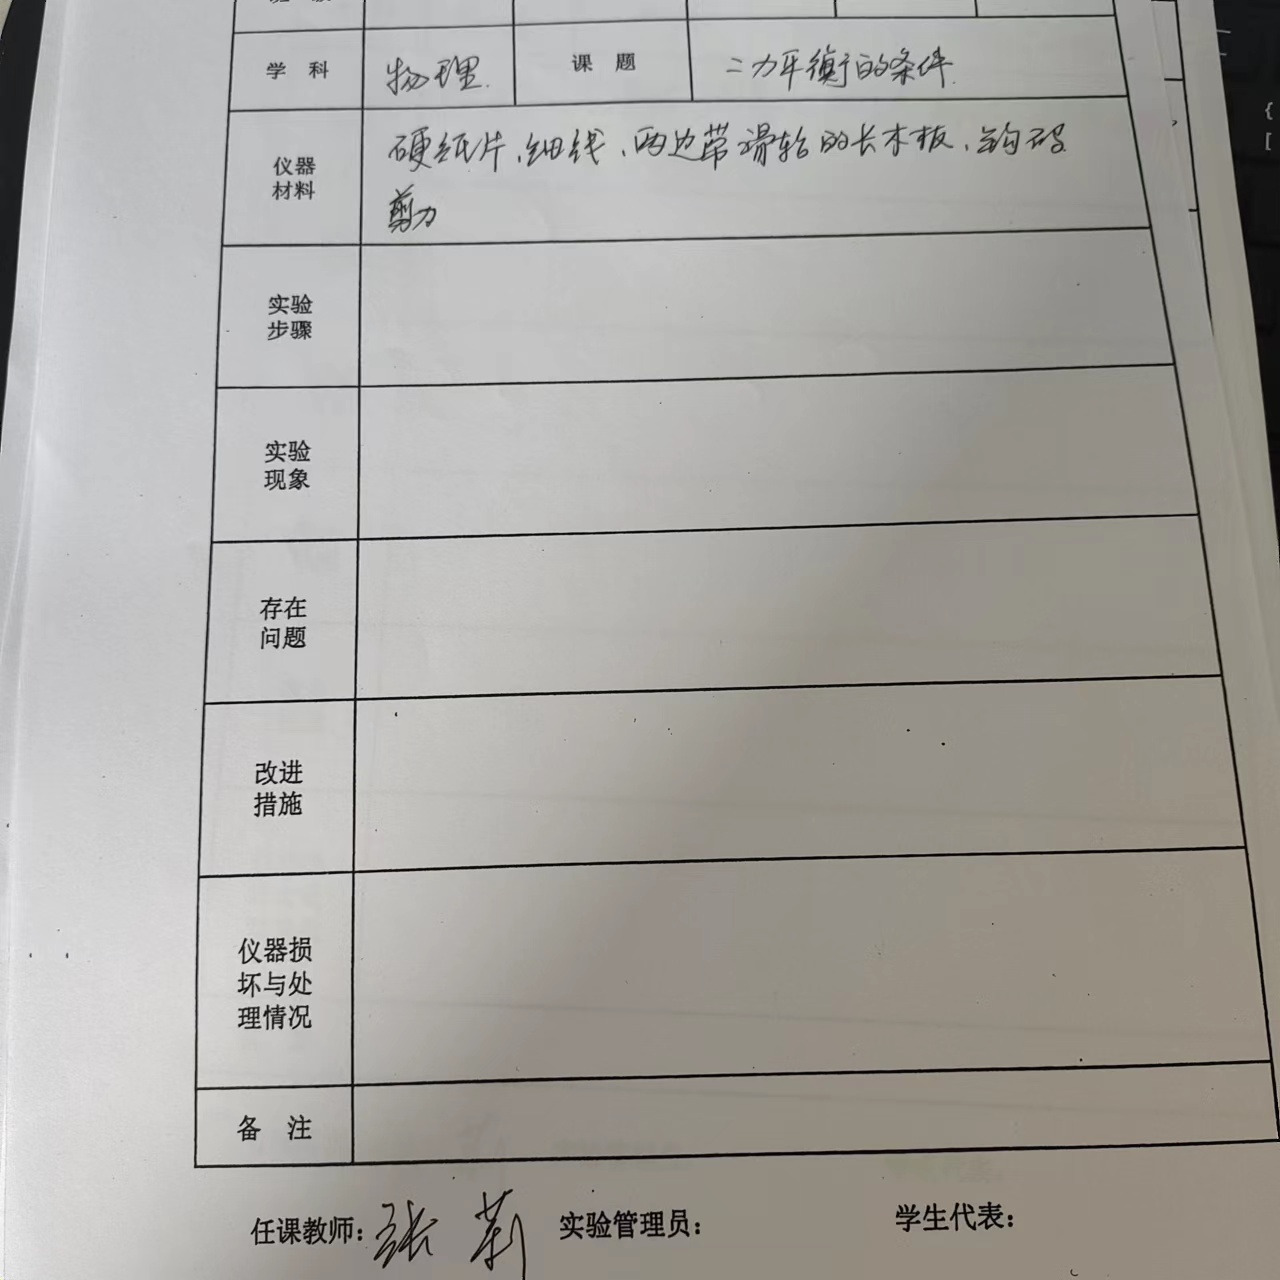 学 科 物理 课 题 二力平衡的条件
仪器 硬纸片、细线、两边带滑轮的长木板、钩码
材料 剪刀
实验
步骤
实验
现象
存在
问题
改进
措施
仪器损
坏与处
理情况
备 注
任课教师: 张莉 实验管理员: 学生代表: